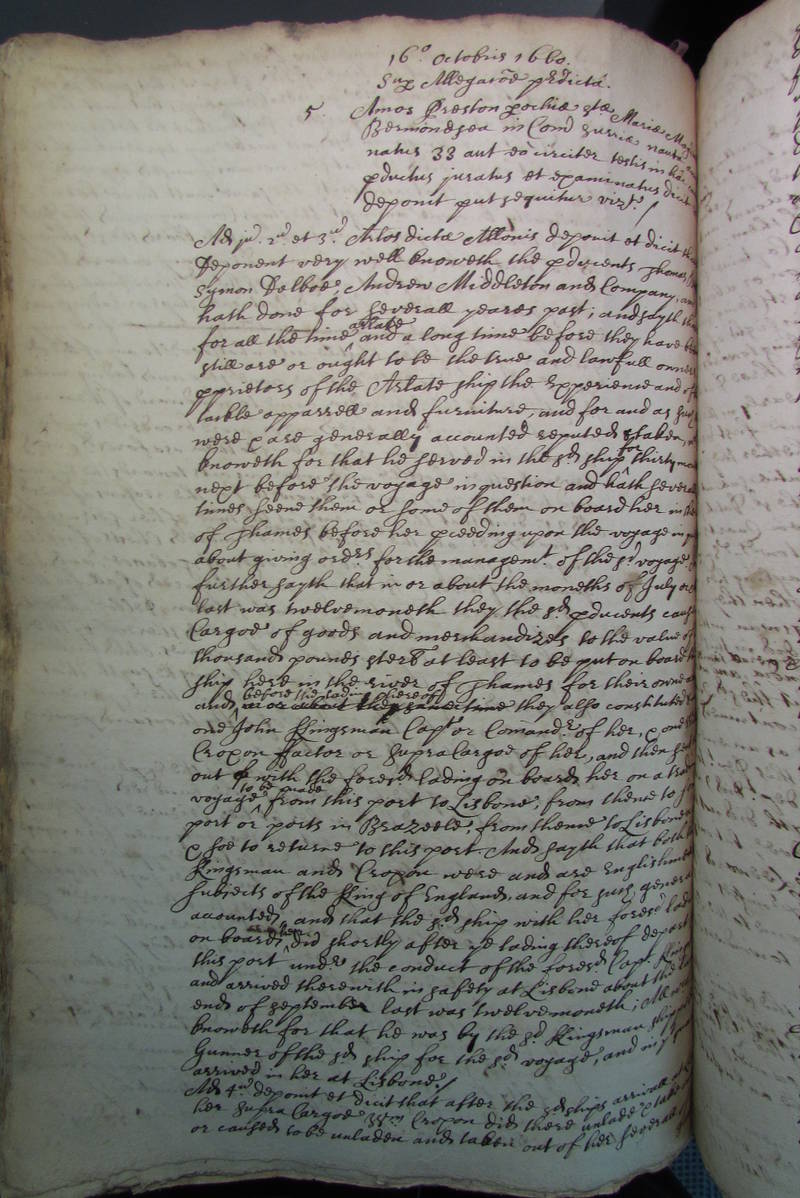 16o Octobris 1660.
Sup Allegatoe prdicta.
5 Amos Preston pochiæ stæ Mariæ
Bermondsea in Com Surriæ nauta
natus 33 aut eo circiter testis in
pductus juratus et examinatus dicit
deponit put sequitur vizt. /
Ad ju. 2u et 3u. Arlos dictæ Allonis deponit et dicit
Deponent very well knoweth the pducents Thomas
Symon Delboe, Andrew Middleton and Company, and
hath done for severall yeares past; and sayth
for all the time arlate and a long time before they have
still are or ought to be the true and lawfull
pprietors of the Arlate ship the Experience and of
tackle apparrell and furniture, and for and as such
were & are generally accounted reputed & taken,
knoweth for that he served in the sd ship for thirty
next before the voyage in question and hath severall
times seene them or some of them on board her in
of Thames before her pceeding upon the voyage in
about giving ordrs for the managemt. of the sd voyage
further sayth that in or about the moneths of July
last was twelvemoneth they the sd. pducents
Cargoe of goods and merchandizes to the value of
thousand pounds sterl at least to be put on board
ship here in the river of Thames for their owne
and before the lading thereof in or about the same time they also constituted
one John Kingsman Capt or Comandr of her, & one
Croxon Factor or Supra Cargoe of her, and then
out with the foresd lading on board her on a
voyage to be made from this port to Lisbone, from thence to
port or ports in Brazeele, from thence to Lisbone
& soe to returne to this port. And sayth that both
Kingsman and Croxon were and are Englishmen
subjects of the King of England, and for such
accounted, and that the sd ship with her foresd
on board did shortly after ye lading thereof depart
this port undr the conduct of the foresd Capt.
and arrived therewith in safety at Lisbone about the
end of September last was twelvemoneth;
knoweth for that he was by the sd Kingsman
Gunner of the sd ship for the sd voyage, and
arrived in her at Lisbone. /
Ad 4u deponit et dicit that after the sd ships arrivall
her Supra Cargoe Croxon did there unlade &
or caused to be unladen and taken out of her severall